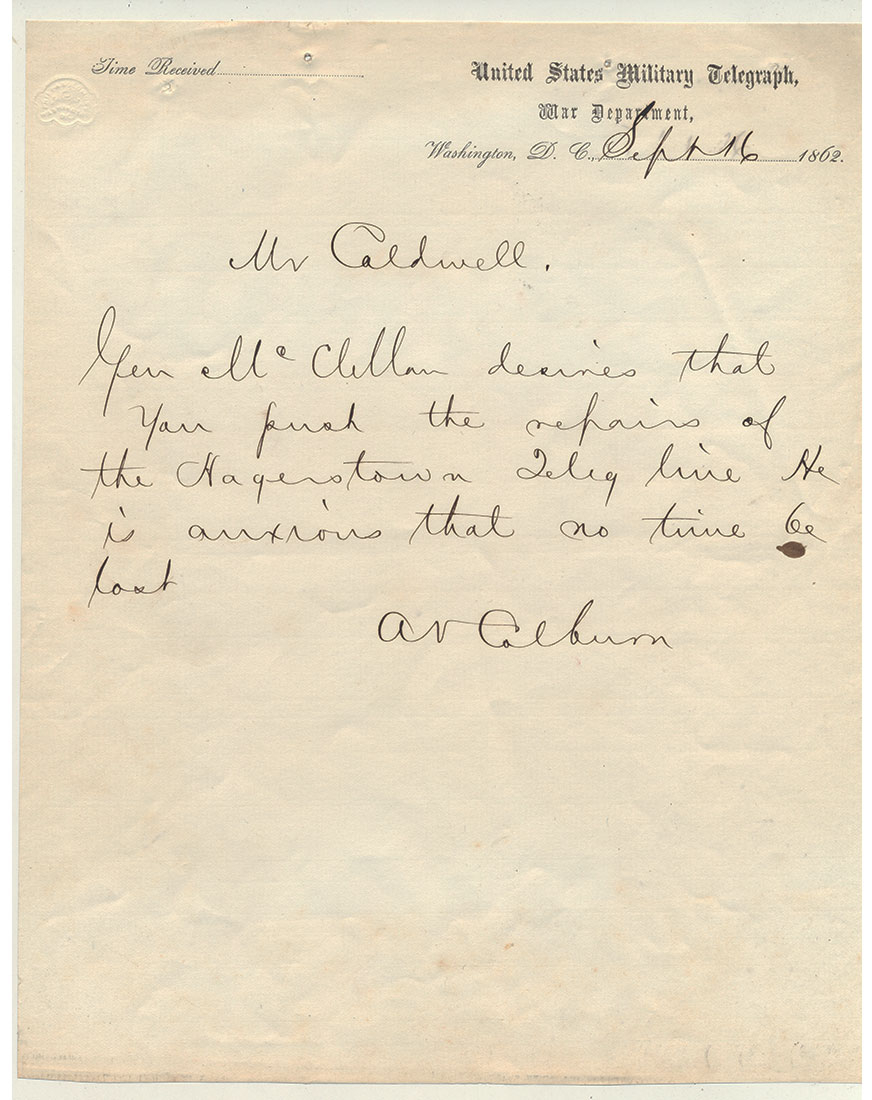 Time Received
United States Military Telegraph,
War Department,
Washington, D. C., Sept 16 1862.
Mr Caldwell.
Gen Mc Clellan desires that
You push the repairs of
the Hagerstown Teleg line He
is anxious that no time be
lost
AV Colburn